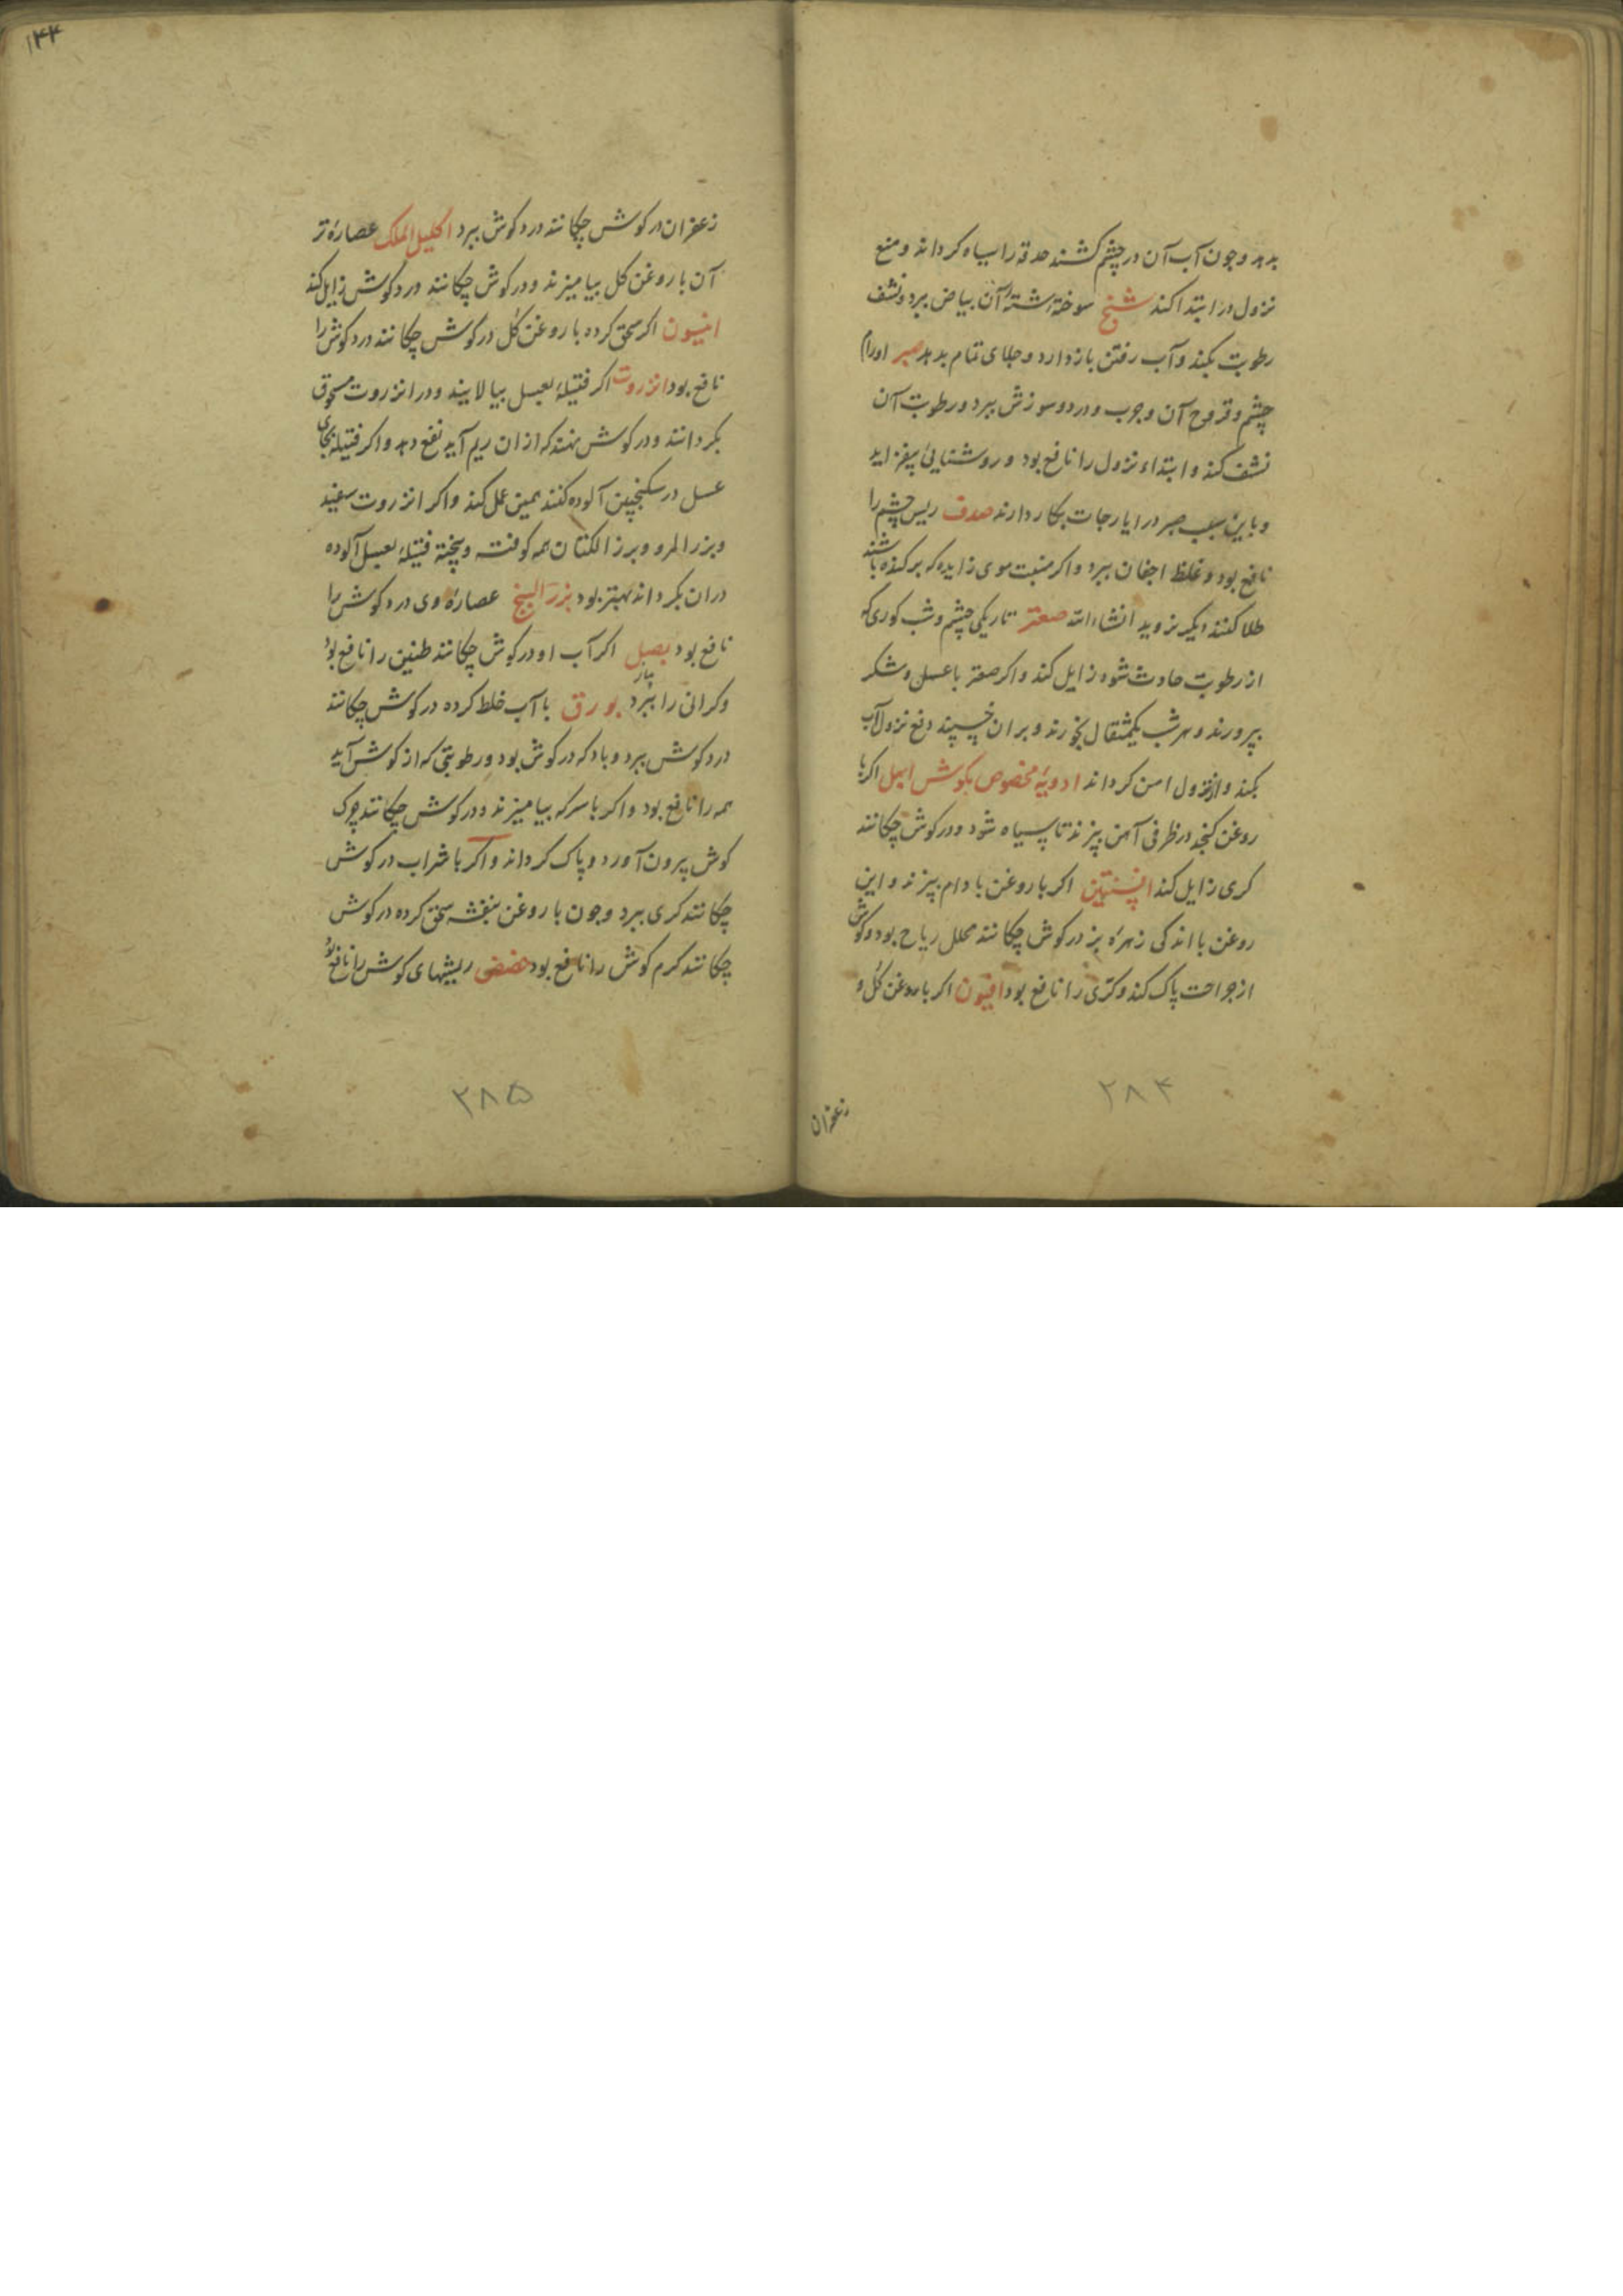 بدهد و چون آب آن در چشم کشند حدقه را سیاه کرداند و منع
نزول در ابتدا کند شنج سوخته شسته آن بیاض ببرد و نشف
رطوبت بکند و آب رفتن باز دارد و جلای تمام بدهد صبر اورام
چشم و قروح آن و جرب و درد و سوزش ببرد و رطوبت آن
نشف کند و ابتداء نزول را نافع بود و روشنایی بیفزاید
و باین سبب صبر در ایارجات بکار دارند صدف ریس چشم را
نافع بود و غلظ اجفان ببرد و اکر منبت موی زایده که برکنده باشند
طلا کنند دیکر نروید انشاء الله صعتر تاریکی چشم و شب کوری که
از رطوبت حادث شود زایل کند و اکر صعتر با عسل و شکر
بپرورند و هر شب یکمثقال بخورند و بران خسپند دفع نزول آب
بکند و از نزول امن کرداند ادویهٔ مخصوص بکوش ابهل اکر با
روغن کنجد در ظرفی آهن بپزند تا سیاه شود و در کوش چکانند
کری زایل کند افسنتین اکر با روغن بادام بپزند و این
روغن با اندکی زهرهٔ بز در کوش چکانند محلل ریاح بود و کوش
از جراحت پاک کند و کری را نافع بود افیون اکر با روغن کل و
زعفران
۲۸۴
۱۴۴
زعفران در کوش چکانند درد کوش ببرد اکلیل الملک عصارهٔ تر
آن با روغن کل بیامیزند و در کوش چکانند درد کوش زایل کند
انیسون اکر سحق کرده با روغن کل در کوش چکانند درد کوش را
نافع بود انزروت اکر فتیلهٔ بعسل بیالایند و در انزروت مسحوق
بکردانند و در کوش نهند که از ان ریم آید نفع دهد و اکر فتیله بجای
عسل در سکنجبین آلوده کنند همین عمل کند و اکر انزروت سفید
و بزر المرو و بزر الکتان همه کوفته و بیخته فتیلهٔ بعسل آلوده
دران بکرداند بهتر بود بزر البنج عصارهٔ وی درد کوش را
نافع بود بصل اکر آب او در کوش چکانند طنین را نافع بود
پیاز
و کرانی را ببرد بورق با آب خلط کرده در کوش چکانند
درد کوش ببرد و باد که در کوش بود و رطوبتی که از کوش آید
همه را نافع بود و اکر با سرکه بیامیزند و در کوش چکانند چرک
کوش بیرون آورد و پاک کرداند و اکر با شراب در کوش
چکانند کری ببرد و چون با روغن بنفشه سحق کرده در کوش
چکانند کرم کوش را نافع بود حضض ریشهای کوش را نافع بود
۲۸۵